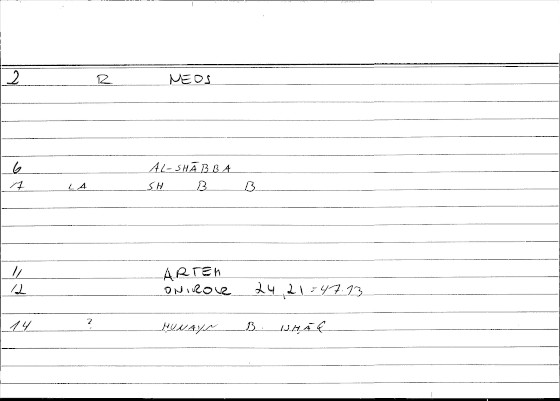 2 R NEOS
6 AL-SHĀBBA
7 LA SH B B
11 ARTEM
12 ONIROCR 24,21=47.13
14 ? HUNAYN B. ISḤĀḲ